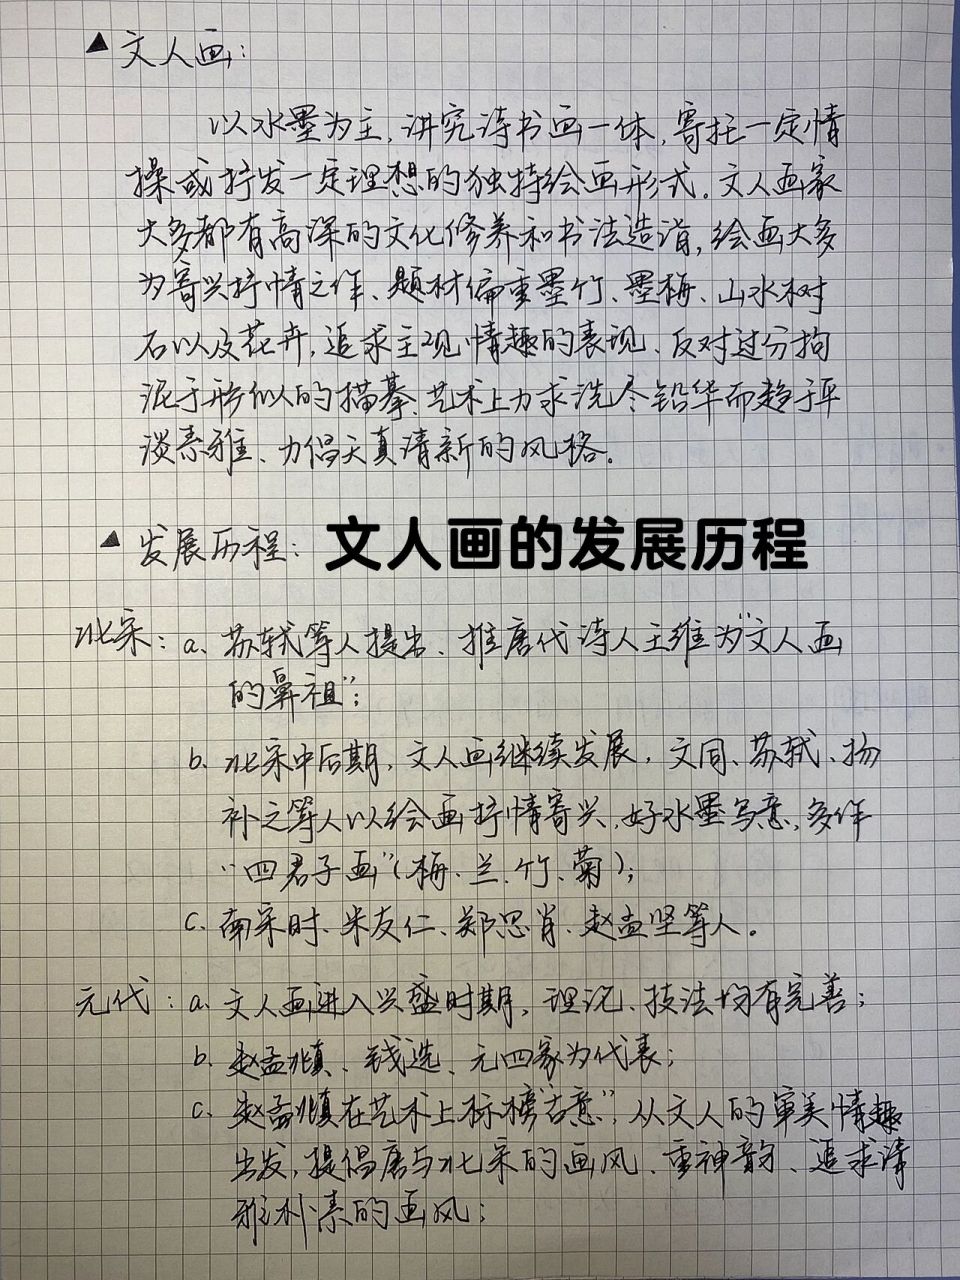 ▲ 文人画:
以水墨为主,讲究诗书画一体,寄托一定情
操或抒发一定理想的独特绘画形式。文人画家
大多都有高深的文化修养和书法造诣,绘画大多
为寄兴抒情之作、题材偏重墨竹、墨梅、山水树
石以及花卉,追求主观情趣的表现、反对过分拘
泥于形似的描摹、艺术上力求洗尽铅华而趋于平
淡素雅、力倡天真清新的风格。
▲ 发展历程: 文人画的发展历程
北宋: a、苏轼等人提出、推唐代诗人王维为“文人画
的鼻祖”;
b、北宋中后期,文人画继续发展,文同、苏轼、扬
补之等人以绘画抒情寄兴,好水墨写意,多作
“四君子画”(梅、兰、竹、菊);
c、南宋时、米友仁、郑思肖、赵孟坚等人。
元代: a、文人画进入兴盛时期,理论、技法均有完善;
b、赵孟頫、钱选、元四家为代表;
c、赵孟頫在艺术上标榜“古意”,从文人的审美情趣
出发,提倡唐与北宋的画风、重神韵、追求清
雅朴素的画风;